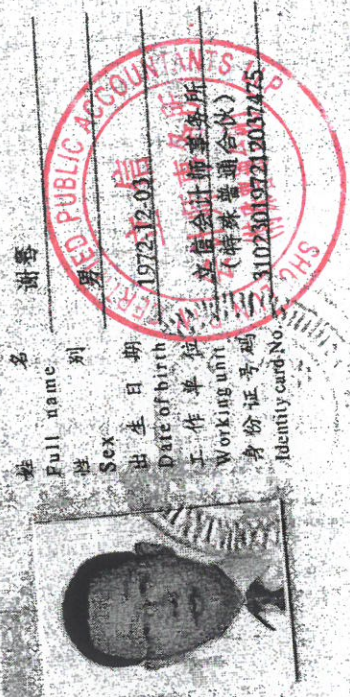 姓 名 谢骞
Full name
性 别 男
Sex
出 生 日 期 1972-12-03
Date of birth
工 作 单 位 立信会计师事务所
(特殊普通合伙)
Working unit
身 份 证 号 码 310230197212037475
Identity card No.
PUBLIC ACCOUNTANTS LLP
立信